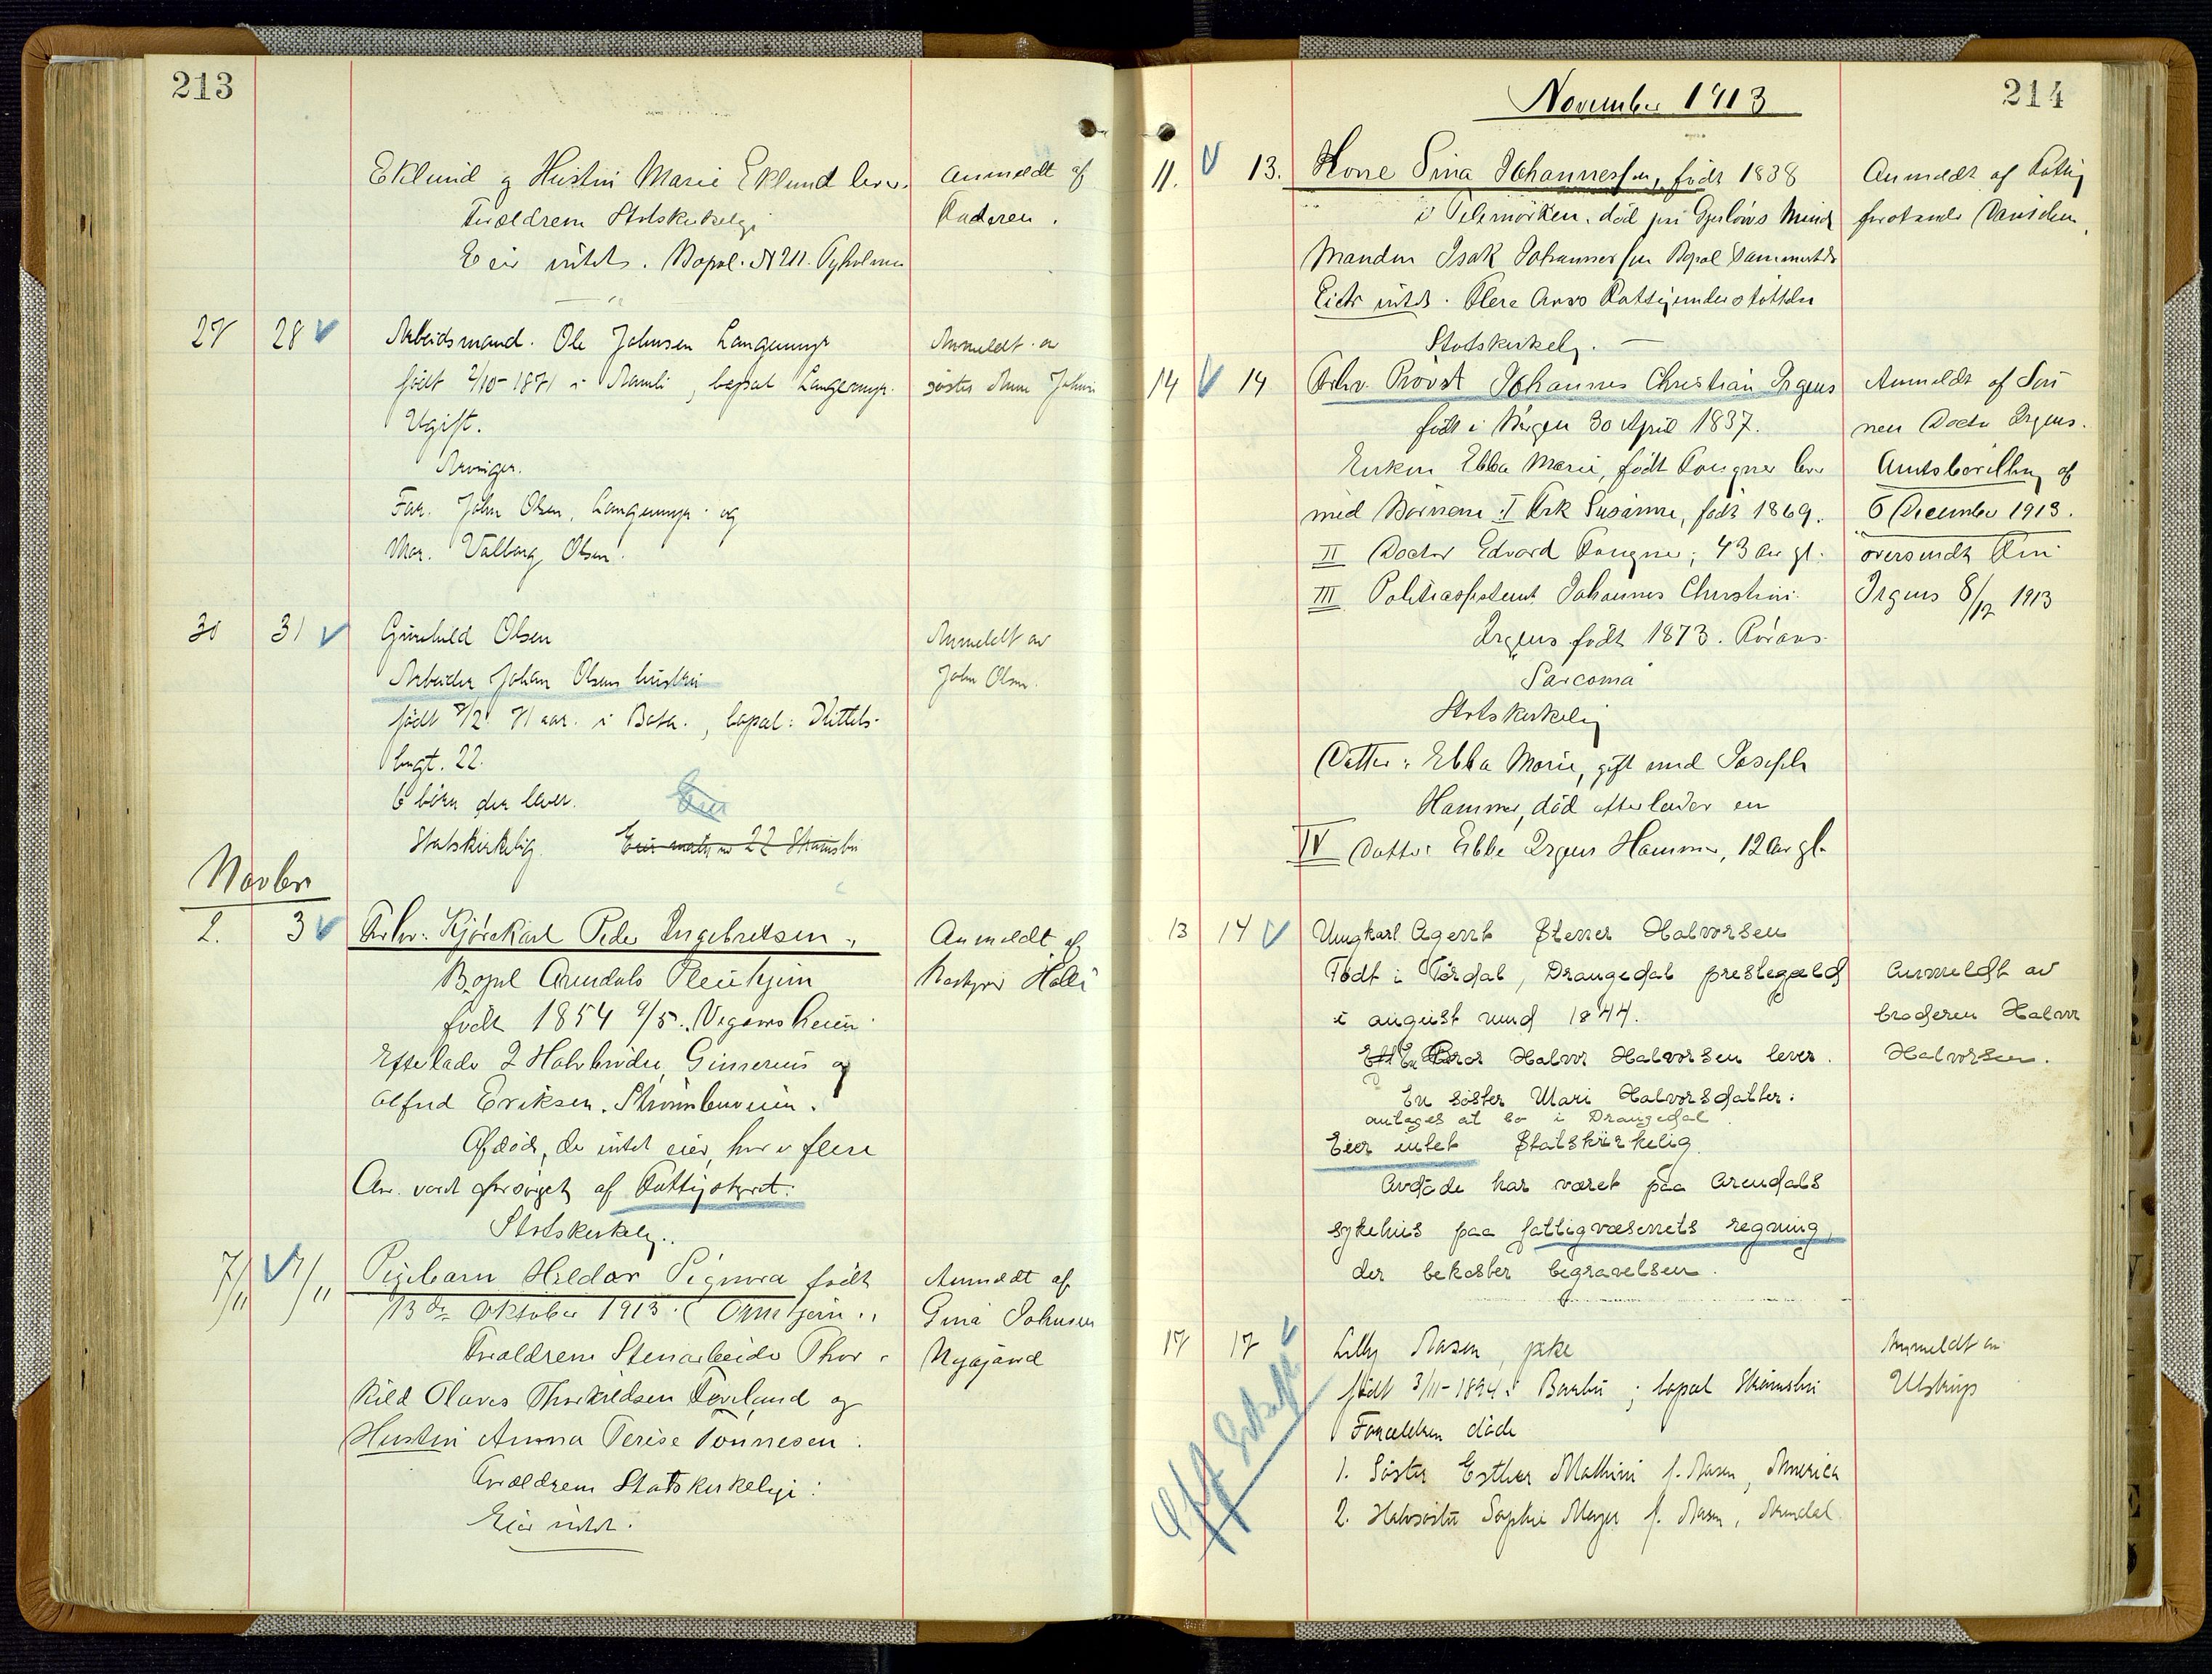 213
Eklund og Hustru Marie Eklund lever.
Forældrene Statskirkelige
Eier intet. Bopæl. N 211. Tyholmen
anmeldt af
Faderen.
27 28 Arbeidsmand. Ole Johnsen Langemyr
født 2/10-1871 i Aamli, bopæl Langemyr.
Ugift.
Arvinger.
Far. John Olsen, Langemyr og
Mor. Valborg Olsen.
Anmeldt av
søster Anne Johns
30 31 Gunhild Olsen
Arbeider Johan Olsens hustru
født 7/2 71 aar. i Barbu, bopæl: Kittels-
bugt. 22.
6 börn der lever.
Eier
Statskirkelig. Eier matr no 22 Strømsbu
Anmeldt av
John Olsen.
Novbr
2. 3 Forhv. Kjørekarl Peder Ingebretsen
Bopæl Arendals Pleiehjem
født 1854 9/5. Vegaarsheien
Efterlader 2 Halvbrødre, Ginerius og
Alfred Eriksen. Strømbuveien.
Afdøde, der intet eier, har i flere
Aar været forsørget af Fattigstyret.
Statskirkelig.
Anmeldt af
7/11 7/11 Pigebarn Hildar Signora født
13de Oktober 1913 i
Forældrene Stenarbeider Thor-
kild Olaves Thorkildsen Føreland og
Hustru Anna Terese Tønnesen.
Forældrene Statskirkelige.
Eier intet.
Anmeldt af
Gina Johnsen
Nygaard
November 1913
214
11. 13. Kone Sina Johannessen, født 1838
i Telemarken. død på Gjerløws Minde
Manden Isak Johannessen Bopæl sammesteds
Eiede intet. Flere Aars Fattigunderstøttelse
Statskirkelig.
Anmeldt af Fattig
forstander Danielsen.
14 14 Forhv. Provst Johannes Christian Irgens
født i Bergen 30 April 1837.
Enken Ebba Marie, født Fougner lever
med Børnene I Frk Susanne, født 1869.
II Doctor Edvard Fougner, 43 Aar gl.
III Politiassistent Johannes Christian
Irgens født 1873. Röraas
Sarcoma
Statskirkelig
Datter: Ebba Marie, gift med Joseph
Hammer, død efterlader en
IV Datter Ebba Irgens Hammer, 12 Aar gl.
Anmeldt af Søn
nen Doctor Irgens.
Amtsbevilling af
6 December 1913.
oversendt Fru
Irgens 8/12 1913
13 14 Ungkarl Agent Stener Halvorsen
Født i Tørdal, Drangedal prestegæld
i august mnd 1844.
Eft En Bror Halvor Halvorsen lever.
En søster Mari Halvorsdatter:
antages at bo i Drangedal
Eier intet Statskirkelig.
Avdøde har været paa Arendals
sykehus paa fattigvæsenets regning,
der bekoster begravelsen.
Anmeldt av
broderen Halvor
Halvorsen.
17 17 Lilly Aasen, pike
født 3/11-1894 i Barbu; bopæl Strømsbu
Forældrene døde
1. Søster Esther Mathine f. Aasen, America
2. Halvsøster Sophie Meyer f. Aasen, Arendal.
Anmeldt av
Ulstrup